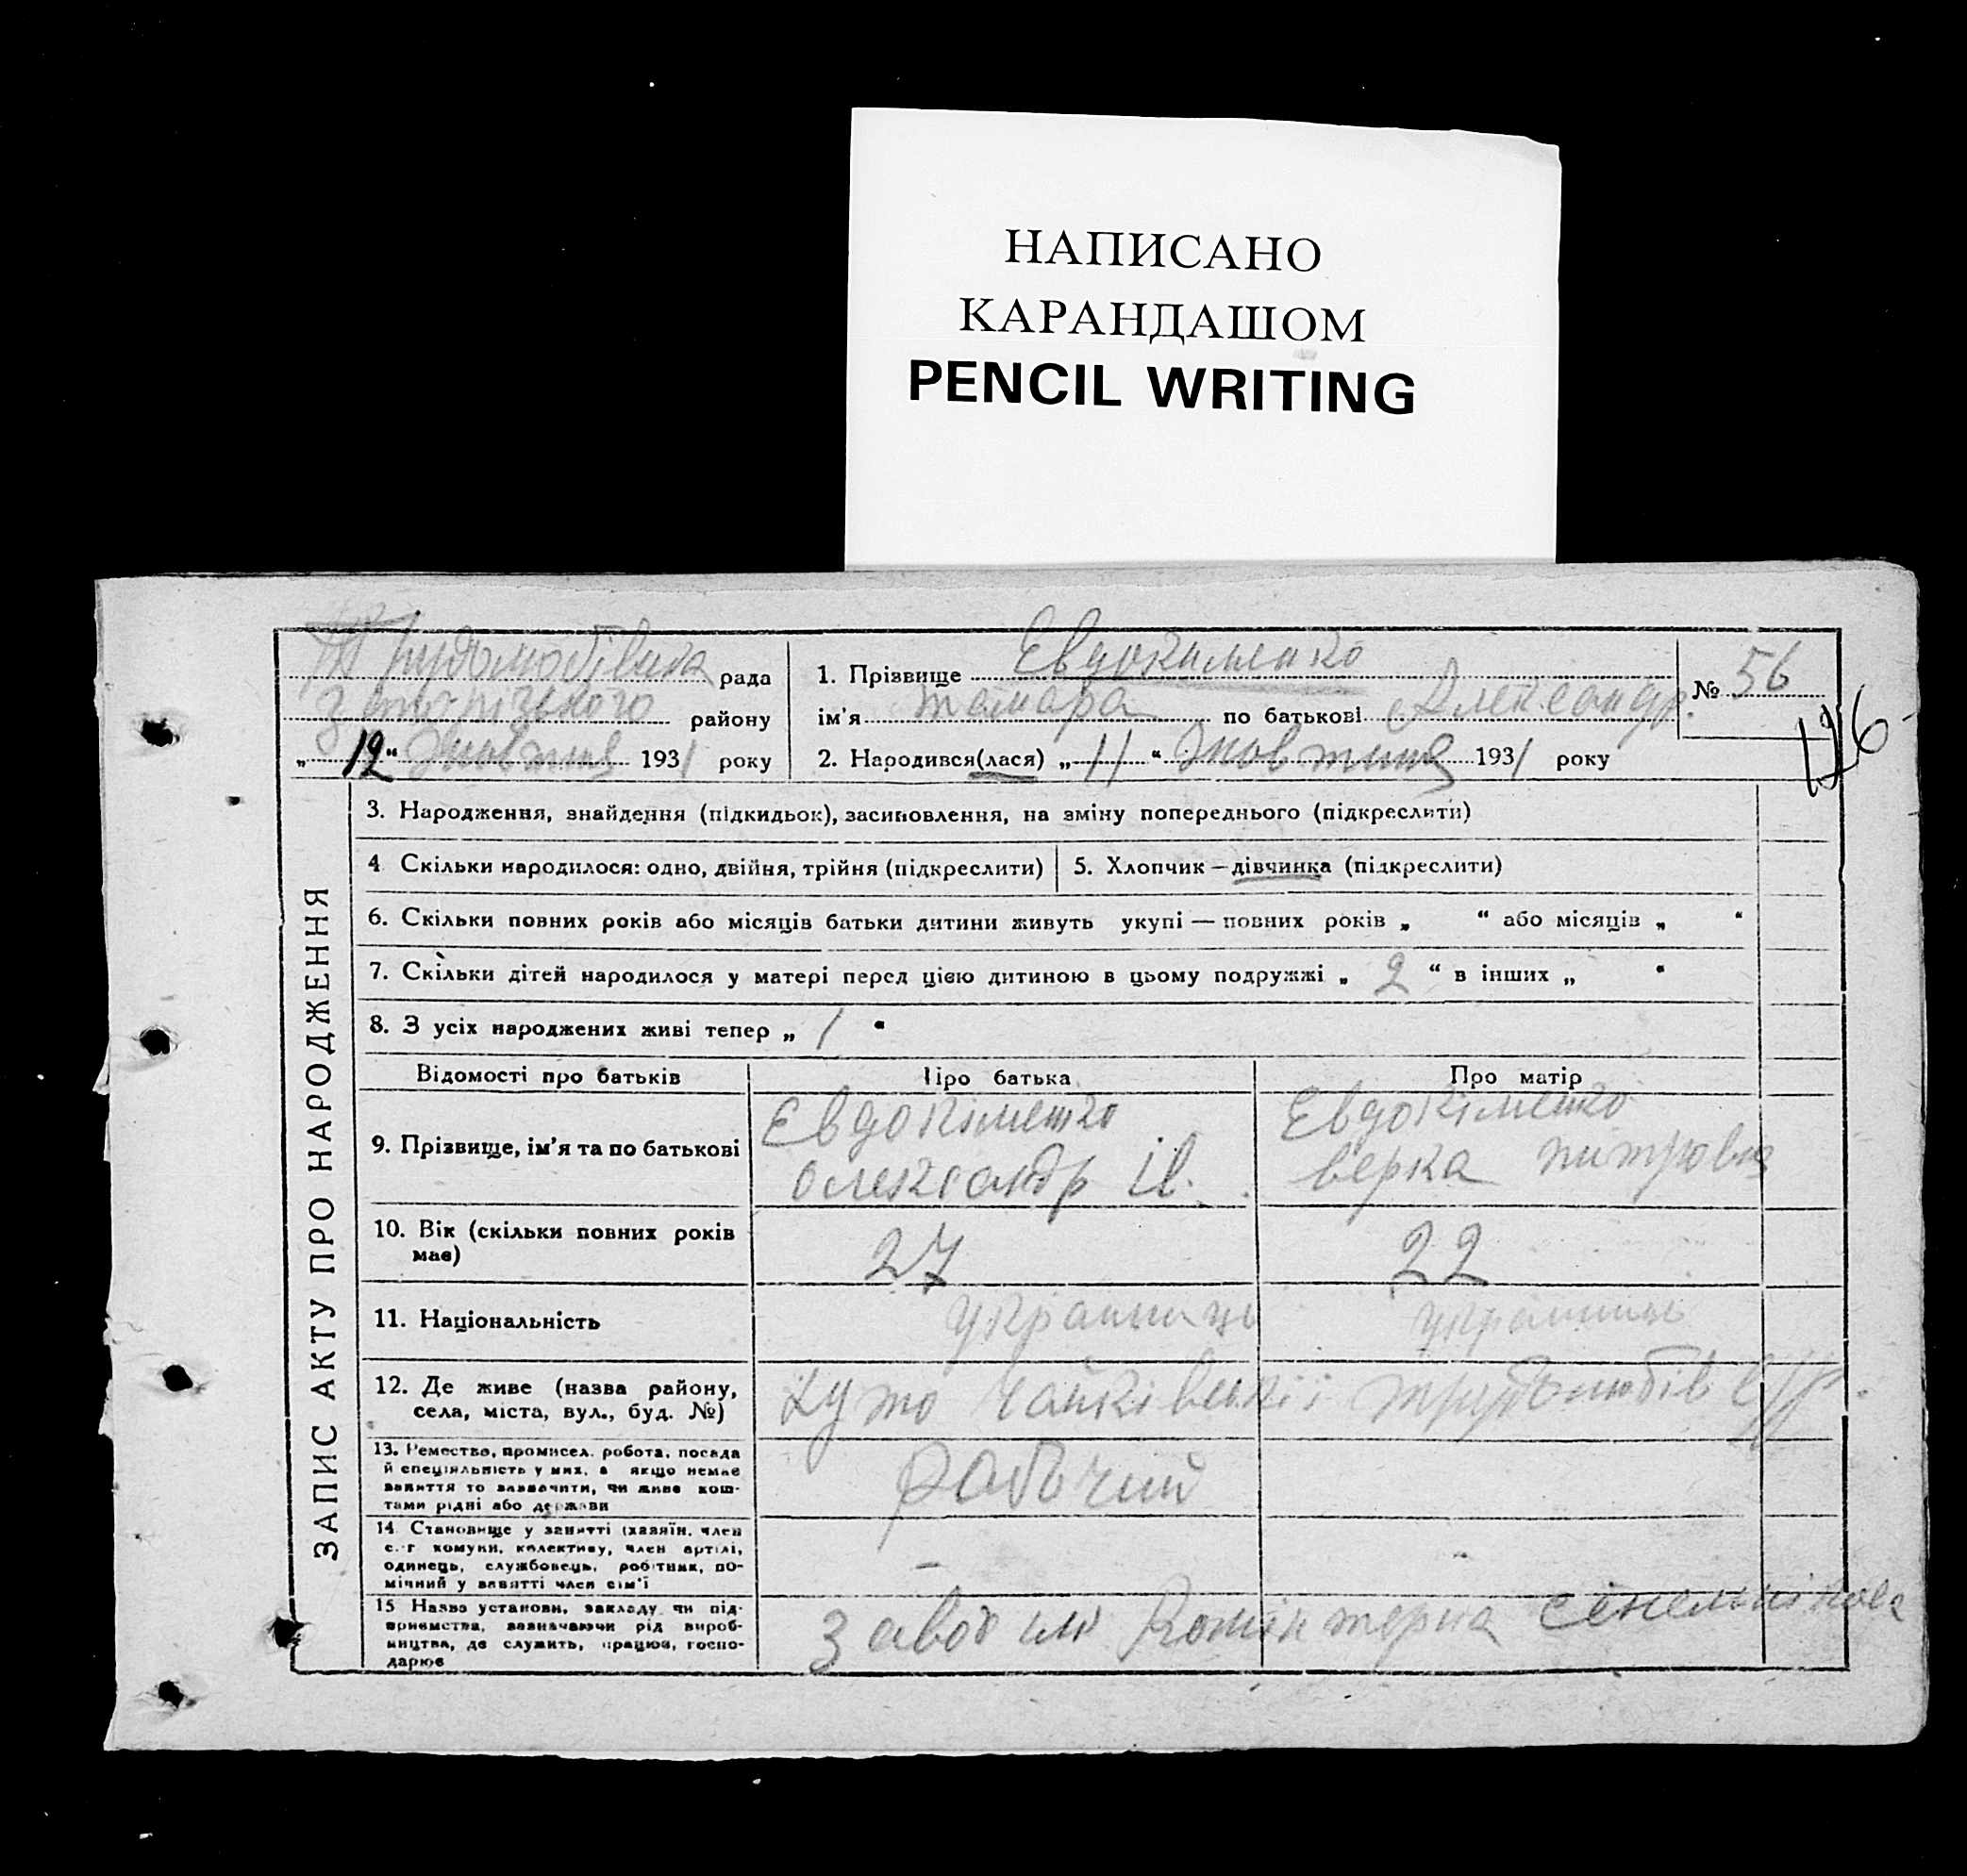 НАПИСАНО
КАРАНДАШОМ
PENCIL WRITING
рада
району
„ 12 “ Жовтня 1931 року
1. Прізвище Евдокименко
ім'я Тамара по батькові Александр.
2. Народився(лася) „ 11 “ Жовтня 1931 року
№ 56
126
ЗАПИС АКТУ ПРО НАРОДЖЕННЯ
3. Народження, знайдення (підкидьок), засиновлення, на зміну попереднього (підкреслити)
4 Скільки народилося: одно, двійня, трійня (підкреслити)
5. Хлопчик – дівчинка (підкреслити)
6. Скільки повних років або місяців батьки дитини живуть укупі — повних років „ “ або місяців „ “
7. Скільки дітей народилося у матері перед цією дитиною в цьому подружжі „ 2 “ в інших „ “
8. З усіх народжених живі тепер „ 1 “
Відомості про батьків Про батька Про матір
9. Прізвище, ім'я та по батькові
Євдокіменко
олександр Ів.
Евдокіменко
верка питровна
10. Вік (скільки повних років має)
27
22
11. Національність
12. Де живе (назва району,
села, міста, вул., буд. №)
13. Ремество, промисел, робота, посада
й спеціяльність у них, а якщо немає
заняття то зазначити, чи живе кош-
тами рідні або держави
рабочий
14 Становище у занятті (хазяїн, член
с.-г комуни, колективу, член артілі,
одинець, службовець, робітник, по-
мічний у занятті член сім'ї
–
15 Назва установи, закладу чи під-
приємства, зазначаючи рід вироб-
ництва, де служить, працює, госпо-
дарює
завод им Комінтерна